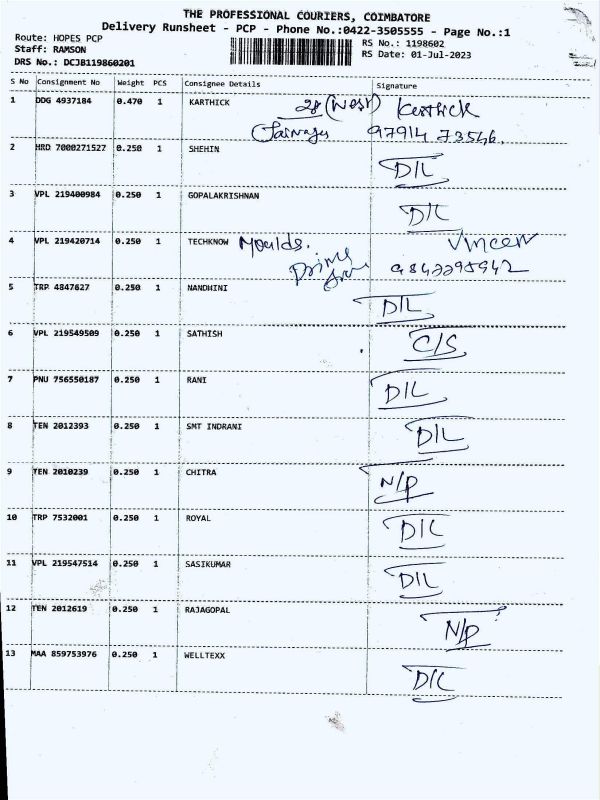 THE PROFESSIONAL COURIERS, COIMBATORE
Delivery Runsheet - PCP - Phone No.:0422-3505555 - Page No.:1
Route: HOPES PCP
Staff: RAMSON
DRS No.: DCJB119860201
RS No.: 1198602
RS Date: 01-Jul-2023
S No Consignment No Weight PCS Consignee Details Signature
1 DDG 4937184 0.470 1 KARTHICK 28 (West) Karthick
97914 73546.
2 HRD 7000271527 0.250 1 SHEHIN D/L
3 VPL 219400984 0.250 1 GOPALAKRISHNAN D/L
4 VPL 219420714 0.250 1 TECHKNOW Moulds. Vincen
Prime 9842295942
5 TRP 4847627 0.250 1 NANDHINI D/L
6 VPL 219549509 0.250 1 SATHISH C/S
7 PNU 756550187 0.250 1 RANI D/L
8 TEN 2012393 0.250 1 SMT INDRANI D/L
9 TEN 2010239 0.250 1 CHITRA N/P
10 TRP 7532001 0.250 1 ROYAL D/L
11 VPL 219547514 0.250 1 SASIKUMAR D/L
12 TEN 2012619 0.250 1 RAJAGOPAL N/P
13 MAA 859753976 0.250 1 WELLTEXX D/L